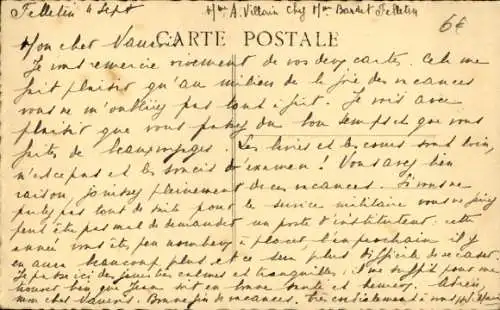 Felletin 4 Sept
Mme A. Villain chez Mme Bardet Felletin
6€
CARTE POSTALE
Mon cher Vauveris
Je vous remercie vivement de vos deux cartes. Cela me
fait plaisir qu'au milieu de la joie des vacances
vous ne m'oubliez pas tout à fait. Je vois avec
plaisir que vous passez du bon temps et que vous
faites de beaux voyages. Les livres et les cours sont loin,
n'est-ce pas et les soucis d'examen ! Vous avez bien
raison, jouissez pleinement de ces vacances. Si vous ne
partez pas tout de suite pour le service militaire vous ne feriez
peut être pas mal de demander un poste d'instituteur. cette
année vous êtes peu nombreux à placer, l'an prochain il y
en aura beaucoup plus et ce sera plus difficile de se caser.
Je passe ici des journées calmes et tranquilles, il me suffit pour me
trouver bien que Jean soit en bonne santé et heureux. Adieu,
mon cher Vauveris. Bonne fin de vacances. Très cordialement à vous